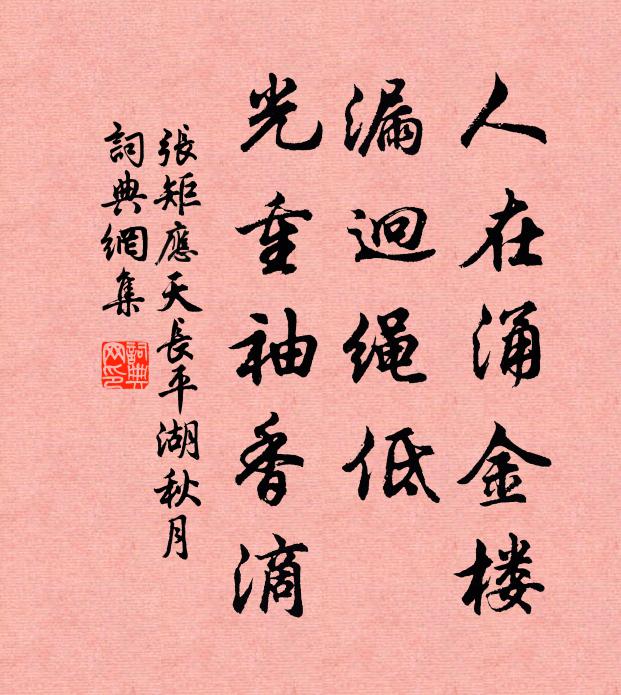 人在涌金楼
漏迥绳低
光重袖香滴
張矩應天長平湖秋月
詞典網集
詞典网印